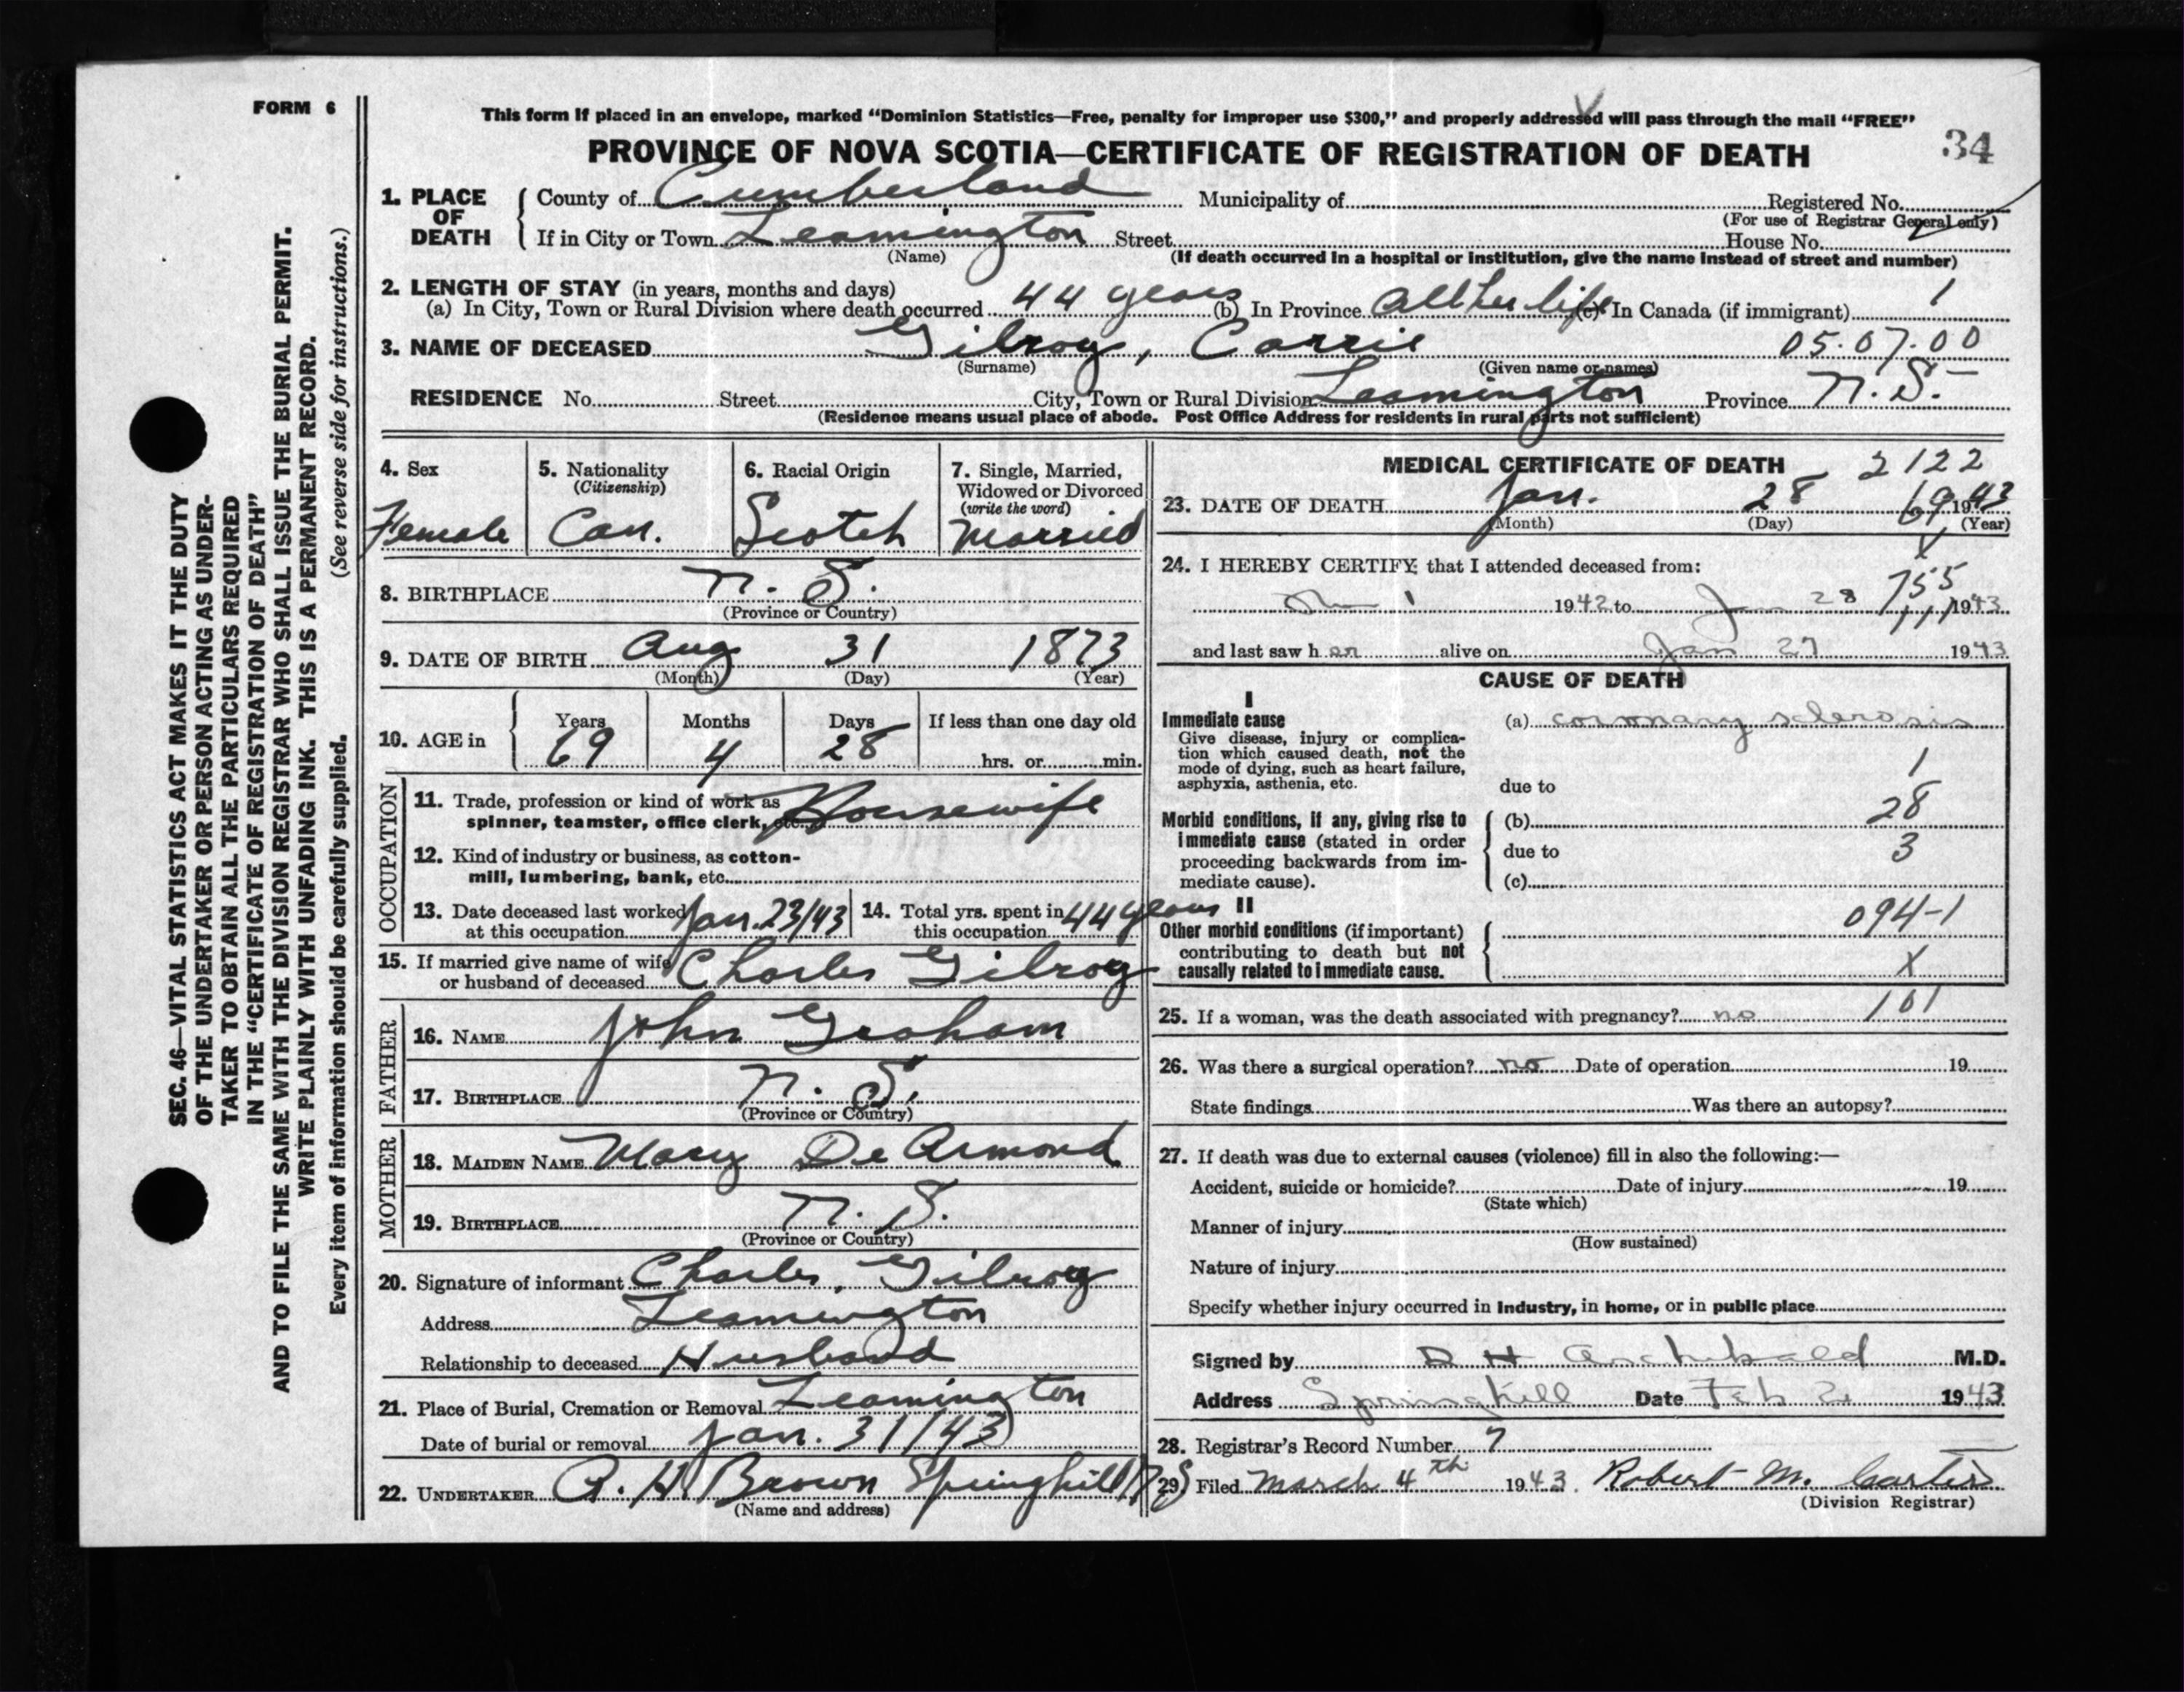 FORM 6
This form if placed in an envelope, marked "Dominion Statistics—Free, penalty for improper use $300," and properly addressed will pass through the mail "FREE"
PROVINCE OF NOVA SCOTIA—CERTIFICATE OF REGISTRATION OF DEATH 34
1. PLACE OF DEATH County of Cumberland Municipality of Registered No.
(For use of Registrar General only)
If in City or Town Leamington Street House No.
(Name) (If death occurred in a hospital or institution, give the name instead of street and number)
2. LENGTH OF STAY (in years, months and days)
(a) In City, Town or Rural Division where death occurred 44 years (b) In Province All her life (c) In Canada (if immigrant) 1
3. NAME OF DECEASED Gilroy, Carrie 05.07.00
(Surname) (Given name or names)
RESIDENCE No. Street City, Town or Rural Division Leamington Province N.S.
(Residence means usual place of abode. Post Office Address for residents in rural parts not sufficient)
4. Sex 5. Nationality 6. Racial Origin 7. Single, Married,
(Citizenship) Widowed or Divorced
(write the word)
Female Can. Scotch Married
8. BIRTHPLACE N.S.
(Province or Country)
9. DATE OF BIRTH Aug 31 1873
(Month) (Day) (Year)
10. AGE in Years Months Days If less than one day old
69 4 28 hrs. or min.
OCCUPATION
11. Trade, profession or kind of work as
spinner, teamster, office clerk, etc. Housewife
12. Kind of industry or business, as cotton-
mill, lumbering, bank, etc.
13. Date deceased last worked at this occupation Jan. 23/43 14. Total yrs. spent in this occupation 44 years
15. If married give name of wife
or husband of deceased Charles Gilroy
FATHER
16. NAME John Graham
17. BIRTHPLACE N.S.
(Province or Country)
MOTHER
18. MAIDEN NAME Mary De Armond
19. BIRTHPLACE N.S.
(Province or Country)
20. Signature of informant Charles Gilroy
Address Leamington
Relationship to deceased Husband
21. Place of Burial, Cremation or Removal Leamington
Date of burial or removal Jan. 31/43
22. UNDERTAKER A. H. Brown Springhill N S
(Name and address)
MEDICAL CERTIFICATE OF DEATH 2122
23. DATE OF DEATH Jan. 28 1943
69
(Month) (Day) (Year)
24. I HEREBY CERTIFY, that I attended deceased from: X
755
1 1942 to Jan 28 1943
and last saw h er alive on Jan 27 1943
CAUSE OF DEATH
I
Immediate cause (a) coronary sclerosis
Give disease, injury or complica-
tion which caused death, not the
mode of dying, such as heart failure,
asphyxia, asthenia, etc. due to 1
Morbid conditions, if any, giving rise to (b) 28
immediate cause (stated in order due to 3
proceeding backwards from im-
mediate cause). (c)
II
Other morbid conditions (if important) 094-1
contributing to death but not
causally related to immediate cause. X
25. If a woman, was the death associated with pregnancy? no 101
26. Was there a surgical operation? no Date of operation 19
State findings Was there an autopsy?
27. If death was due to external causes (violence) fill in also the following:—
Accident, suicide or homicide? Date of injury 19
(State which)
Manner of injury
(How sustained)
Nature of injury
Specify whether injury occurred in industry, in home, or in public place
Signed by D H Archibald M.D.
Address Springhill Date Feb 2 1943
28. Registrar's Record Number 7
29. Filed March 4th 1943. Robert M. Carter
(Division Registrar)
SEC. 46—VITAL STATISTICS ACT MAKES IT THE DUTY
OF THE UNDERTAKER OR PERSON ACTING AS UNDER-
TAKER TO OBTAIN ALL THE PARTICULARS REQUIRED
IN THE "CERTIFICATE OF REGISTRATION OF DEATH"
AND TO FILE THE SAME WITH THE DIVISION REGISTRAR WHO SHALL ISSUE THE BURIAL PERMIT.
WRITE PLAINLY WITH UNFADING INK. THIS IS A PERMANENT RECORD.
Every item of information should be carefully supplied. (See reverse side for instructions.)